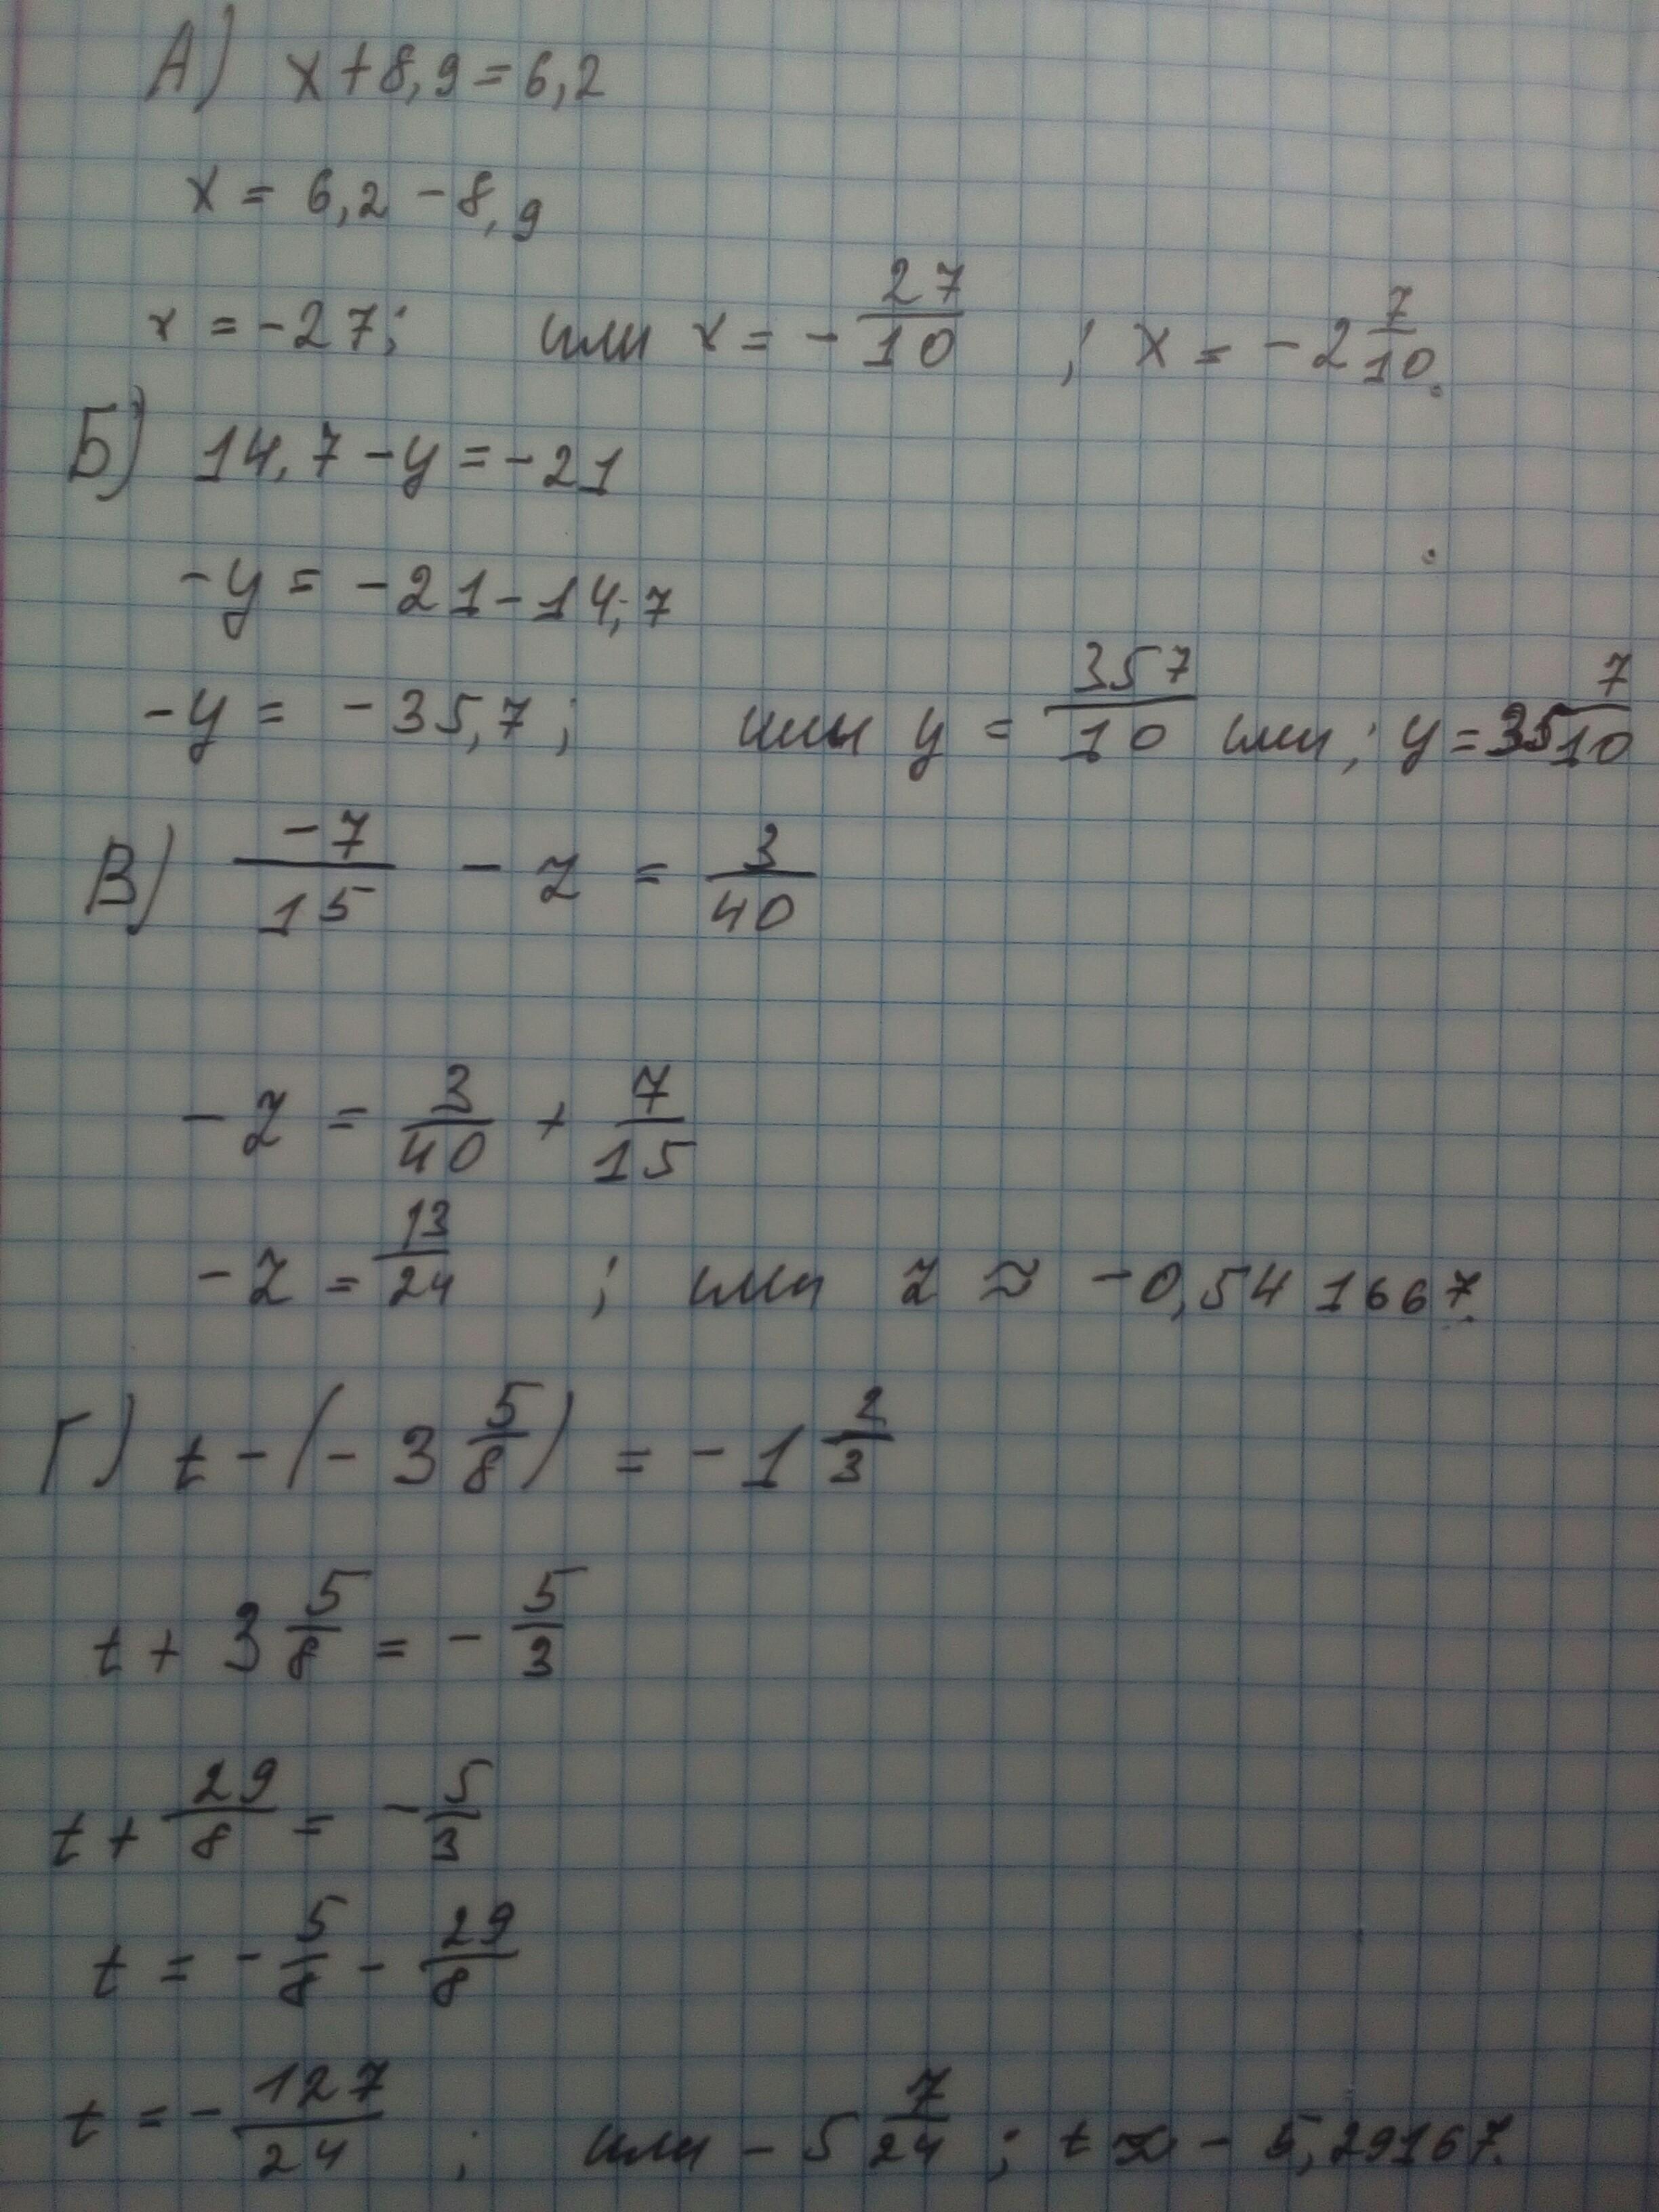 А) x+8,9=6,2
x = 6,2 - 8,9
x = -27; или x = - 27/10 ; x = -2 7/10.
Б) 14,7 - y = -21
-y = -21 - 14,7
-y = -35,7 ; илы y = 357/10 или ; y = 35 7/10
В) -7/15 - z = 3/40
-z = 3/40 + 7/15
-z = 13/24 ; или z ≈ -0,541667.
Г) t - (-3 5/8) = -1 2/3
t + 3 5/8 = - 5/3
t + 29/8 = - 5/3
t = - 5/8 - 29/8
t = - 127/24 ; или -5 7/24 ; t ≈ - 5,29167.